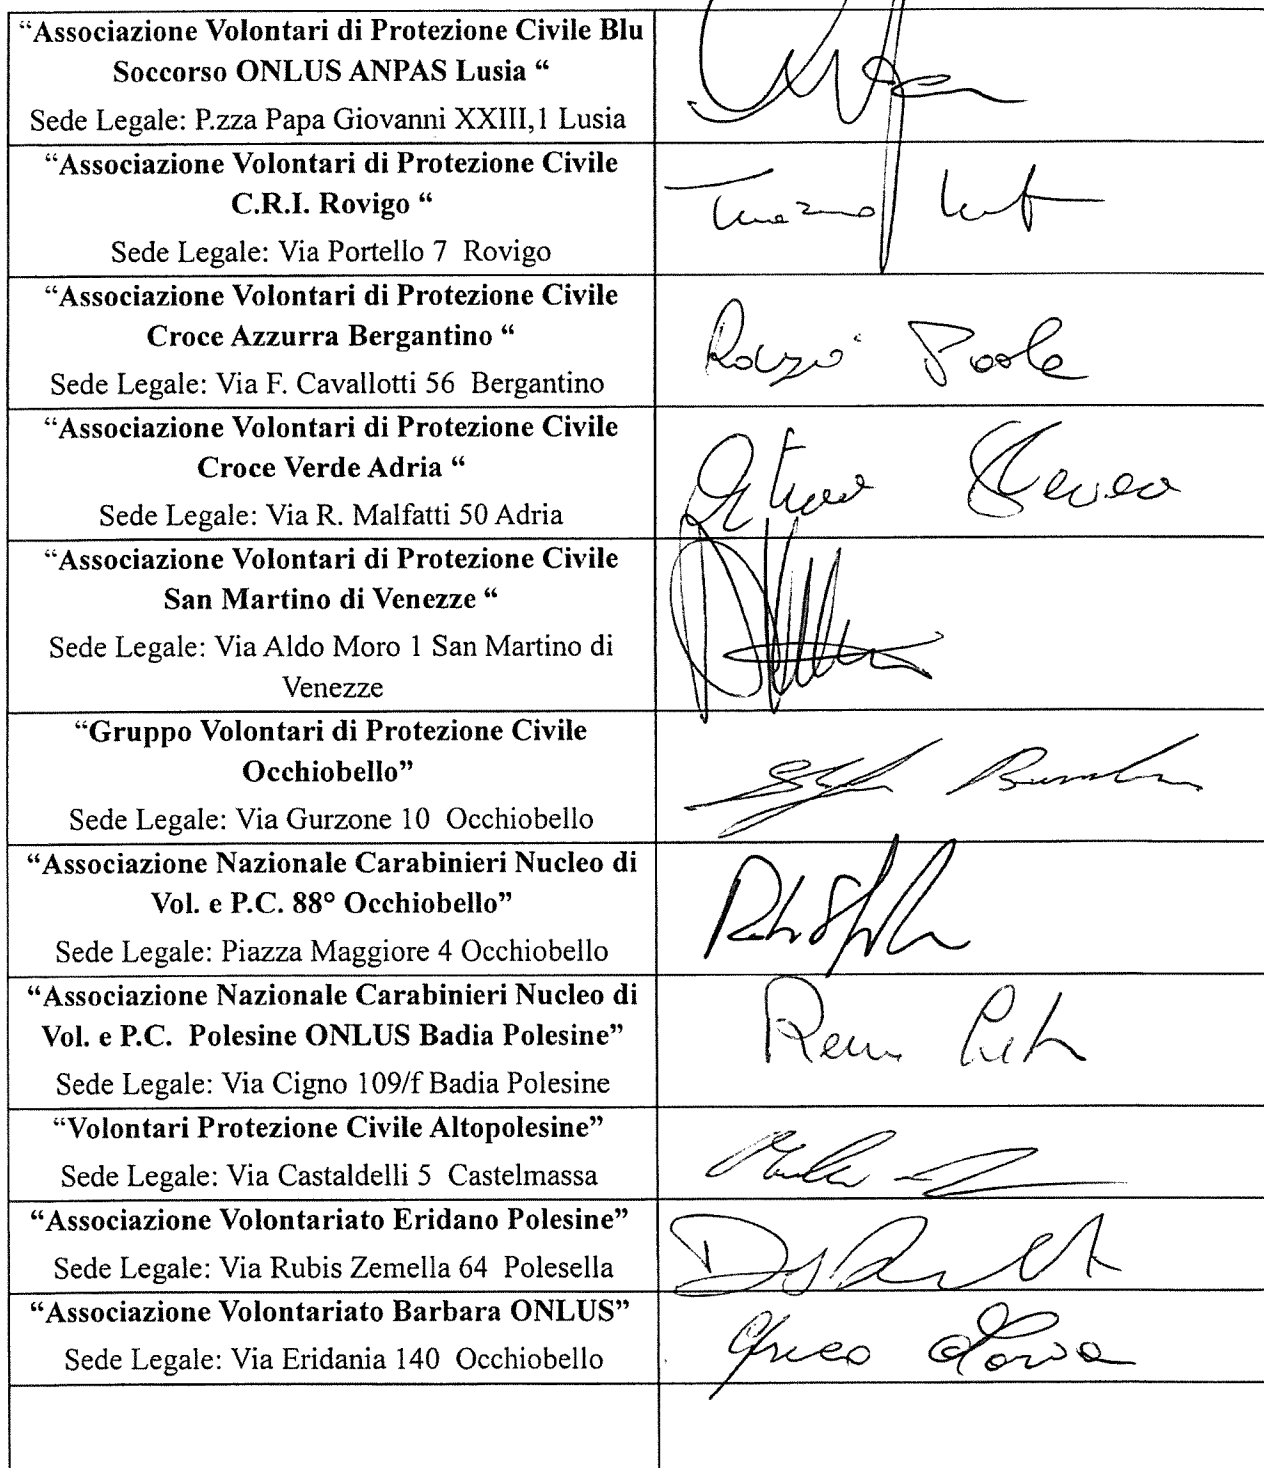 “Associazione Volontari di Protezione Civile Blu
Soccorso ONLUS ANPAS Lusia “
Sede Legale: P.zza Papa Giovanni XXIII,1 Lusia
“Associazione Volontari di Protezione Civile
C.R.I. Rovigo “
Sede Legale: Via Portello 7 Rovigo
“Associazione Volontari di Protezione Civile
Croce Azzurra Bergantino “
Sede Legale: Via F. Cavallotti 56 Bergantino
Paola
“Associazione Volontari di Protezione Civile
Croce Verde Adria “
Sede Legale: Via R. Malfatti 50 Adria
“Associazione Volontari di Protezione Civile
San Martino di Venezze “
Sede Legale: Via Aldo Moro 1 San Martino di
Venezze
“Gruppo Volontari di Protezione Civile
Occhiobello”
Sede Legale: Via Gurzone 10 Occhiobello
“Associazione Nazionale Carabinieri Nucleo di
Vol. e P.C. 88° Occhiobello”
Sede Legale: Piazza Maggiore 4 Occhiobello
“Associazione Nazionale Carabinieri Nucleo di
Vol. e P.C. Polesine ONLUS Badia Polesine”
Sede Legale: Via Cigno 109/f Badia Polesine
“Volontari Protezione Civile Altopolesine”
Sede Legale: Via Castaldelli 5 Castelmassa
“Associazione Volontariato Eridano Polesine”
Sede Legale: Via Rubis Zemella 64 Polesella
“Associazione Volontariato Barbara ONLUS”
Sede Legale: Via Eridania 140 Occhiobello